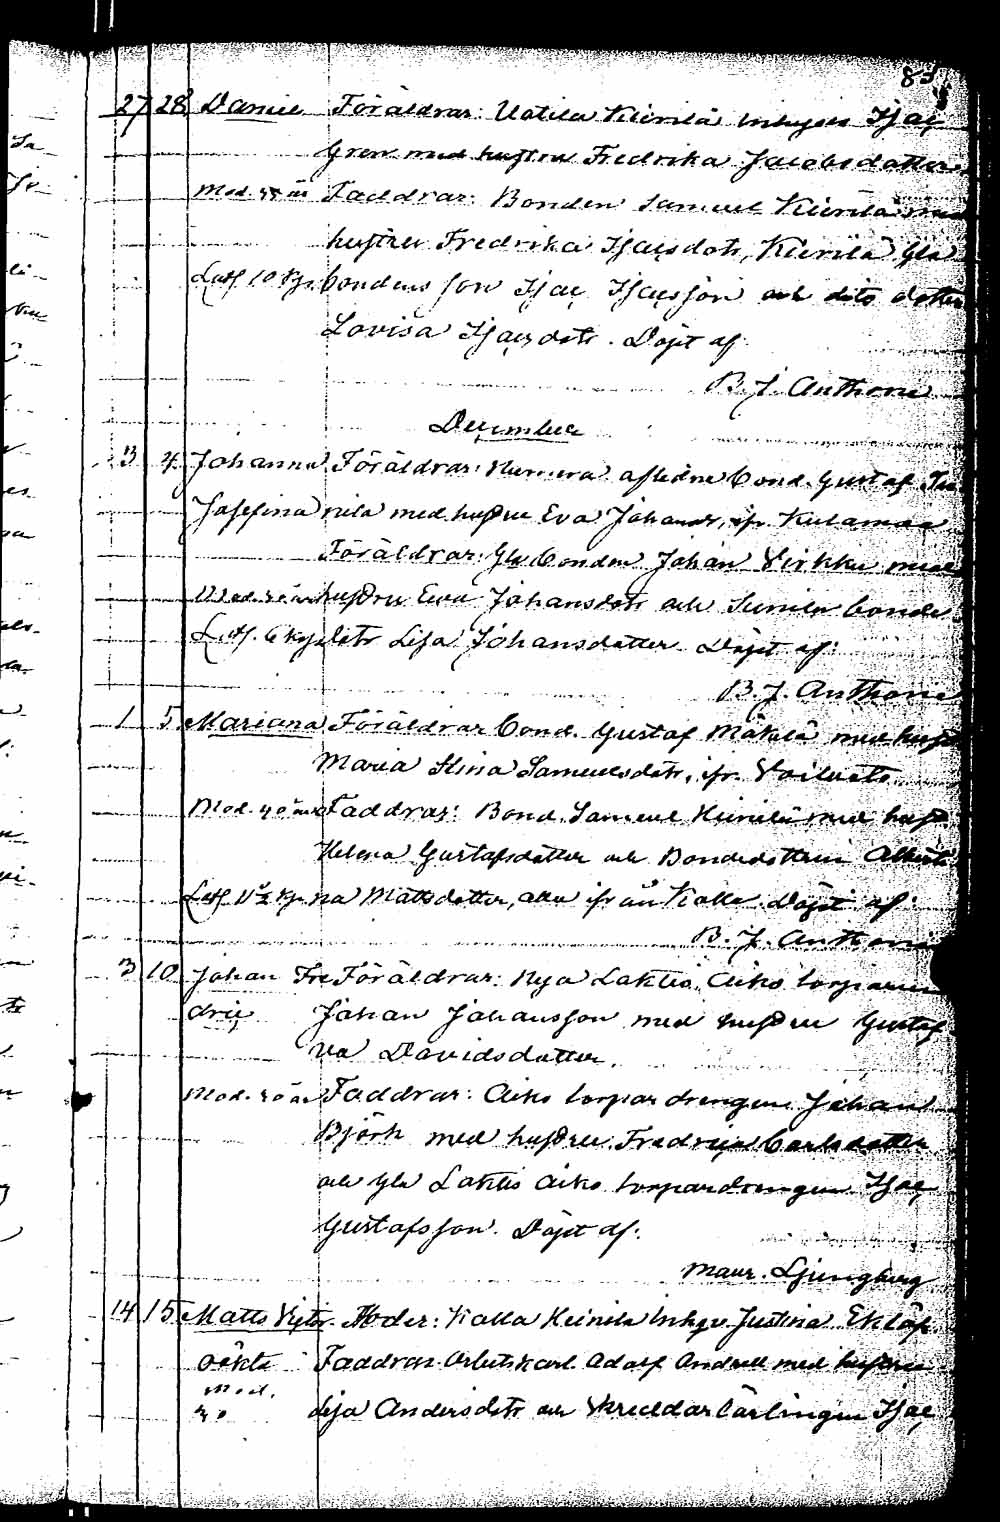 83
27 28 Daniel Föräldrar: Uotila Kiirilä inhyses Isac
Gren med hustru Fredrika Jacobsdotter
Mod. år Faddrar: Bonden Samuel Kiirilä med
hustru Fredrika Isacsdotr, Kiirilä Gla
Lösf 10 kp. bondens son Isac Isacsson och dito dotter
Lovisa Isacsdotr. Döpt af
B. J. Anthoni
December
3 4 Johanna Föräldrar: aflidne bond. Gustaf
Josefina nilä med hustru Eva Johansdr, ifr.
Föräldrar: Gla bonden Johan Virkki med
Mod. år hustru Eva Johansdotr och Sunila bonde
Lösf. 6 kp dotr Lisa Johansdotter Döpt af:
B. J. Anthoni
1 5 Mariana Föräldrar bond. Gustaf Mäkilä med hust
Maria Stina Samuelsdotr, ifr. Voiluoto
Mod. 40 år Faddrar: Bond. Samuel Heinilä med hust.
Helena Gustafsdotter och Bondedottren Alberti
Lösf 11½ kp. na Mattsdotter, alla ifrån Kalla. Döpt af:
B. J. Anthoni
3 10 Johan Fre Föräldrar: Nya Laktis, Aiko torparen
dric Johan Johansson med hustru Gustaf
va Davidsdotter.
Mod. 30 år Faddrar: Aiko torpar drengen Johan
Björk med hustru Fredrica Carlsdotter
och Gla Laktis Aiko torpardrengen Isac
Gustafsson. Döpt af:
Maur. Ljungberg
14 15 Matts Victor. Moder: Kalla Heinilä inhys. Justina Eklöf.
Oäkta Faddrar Arbetskarl Adolf Andell med hustru
Mod.
30 Lisa Andersdotr och Skreddar lärlingen Isac